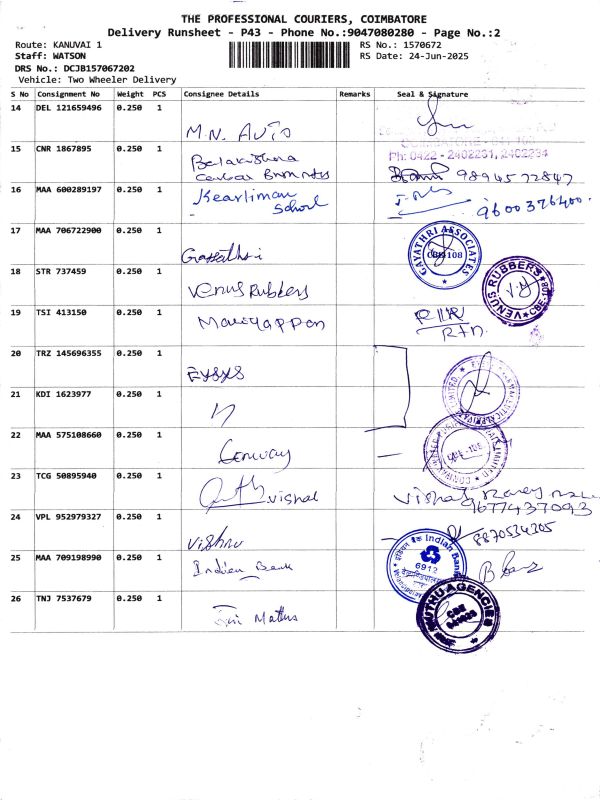 THE PROFESSIONAL COURIERS, COIMBATORE
Delivery Runsheet - P43 - Phone No.:9047080280 - Page No.:2
Route: KANUVAI 1
RS No.: 1570672
Staff: WATSON
RS Date: 24-Jun-2025
DRS No.: DCJB157067202
Vehicle: Two Wheeler Delivery
S No Consignment No Weight PCS Consignee Details Remarks Seal & Signature
14 DEL 121659496 0.250 1
M.N. Auto
15 CNR 1867895 0.250 1
Ph: 0422 - 2402231, 2402234
Balakrishna
9894572847
16 MAA 600289197 0.250 1
Kearliman
School
9600376400
17 MAA 706722900 0.250 1
GAYATHRI ASSOCIATES
CBE-108
18 STR 737459 0.250 1
Venus Rubbers
VENUS RUBBERS
CBE-108
19 TSI 413150 0.250 1
Rtn
20 TRZ 145696355 0.250 1
21 KDI 1623977 0.250 1
22 MAA 575108660 0.250 1
Conway
23 TCG 50895940 0.250 1
Vishal
Vishal
9677437093
24 VPL 952979327 0.250 1
Vishnu
8870534305
25 MAA 709198990 0.250 1
Indian Bank
इंडियन बैंक Indian Bank
6912
26 TNJ 7537679 0.250 1
Sri Muthu
SRI MUTHU AGENCIES
CBE